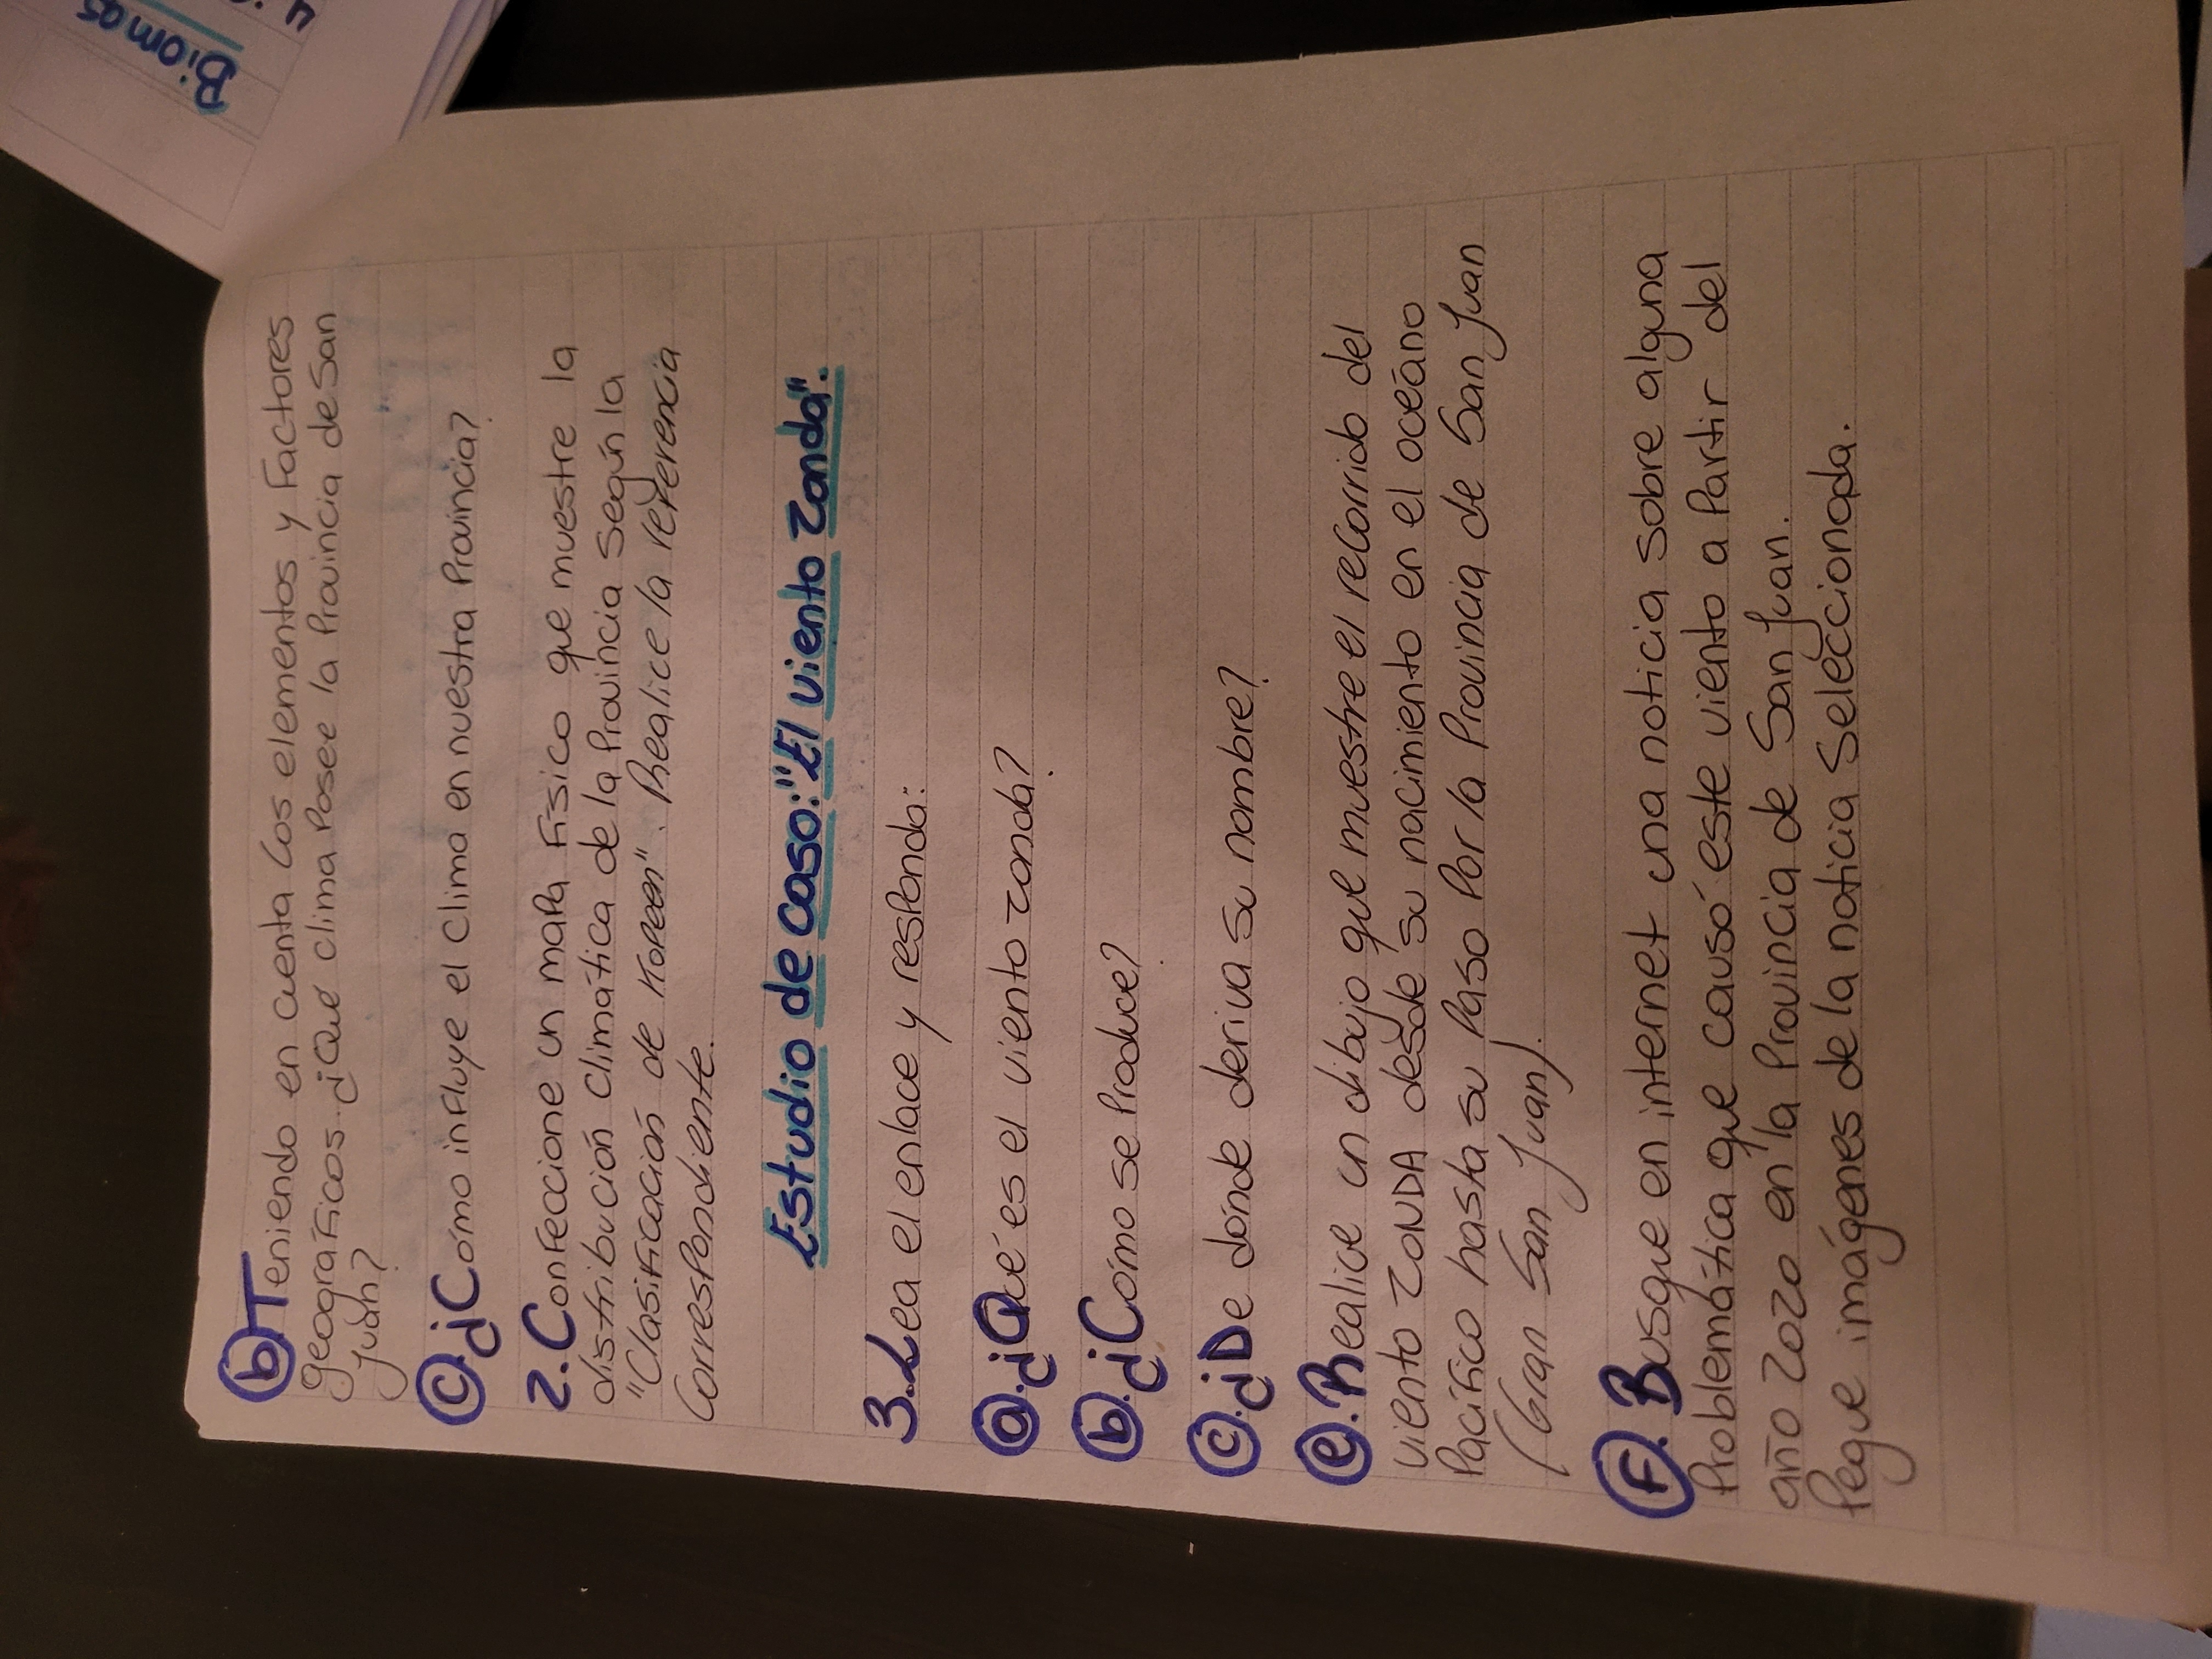 Biomas
b Teniendo en cuenta los elementos y Factores
geograficos. ¿Qué clima Posee la Provincia de San
Juan?
c. ¿Cómo influye el Clima en nuestra Provincia?
2. Confeccione un mapa Físico que muestre la
distribución climática de la Provincia Según la
"Clasificación de Kopeen". Realice la referencia
Correspondiente.
Estudio de caso: "El viento Zonda".
3. Lea el enlace y responda:
a. ¿Qué es el viento zonda?
b. ¿Cómo se Produce?
c. ¿De dónde deriva su nombre?
e. Realice un dibujo que muestre el recorrido del
viento ZONDA desde su nacimiento en el oceáno
Pacífico hasta su Paso Por la Provincia de San Juan
(Gran San Juan).
F. Busque en internet una noticia sobre alguna
Problemática que causó este viento a Partir del
año 2020 en la Provincia de San Juan.
Pegue imágenes de la noticia Seleccionada.